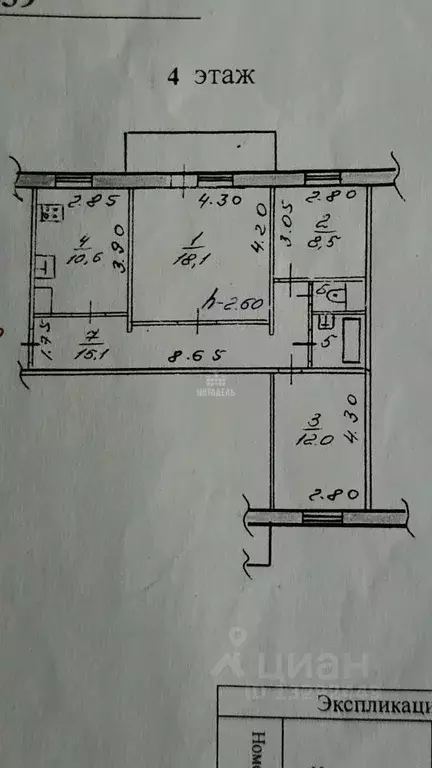 4 этаж
2.85
4.30
2.80
4
10,6
3.90
1
18,1
4.20
3.05
2
8,5
h-2.60
6
5
1.75
7
15,1
8.65
ЦИТАДЕЛЬ
3
12.0
4.30
2.80
циан
Экспликаци
Номе